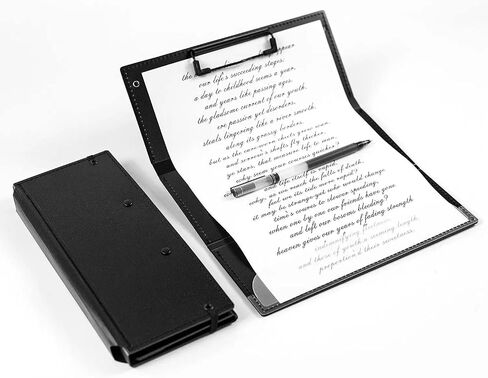 the appear
our life's succeeding stages;
a day to childhood seems a year,
and years like passing ages.
the gladsome current of our youth,
ere passion yet disorders,
steals lingering like a river smooth,
along its grassy borders.
but as the care-worn cheek grows wan,
and sorrow's shafts fly thicker,
ye stars, that measure life to man,
why seem your courses quicker?
life itself is vapid,
why, as we reach the falls of death,
feel we its tide more rapid?
it may be strange-yet who would change
time's course to slower speeding,
when one by one our friends have gone
and left our bosoms bleeding?
heaven gives our years of fading strength
indemnifying fleetness;
and those of youth a seeming length,
proportion'd to their sweetness.